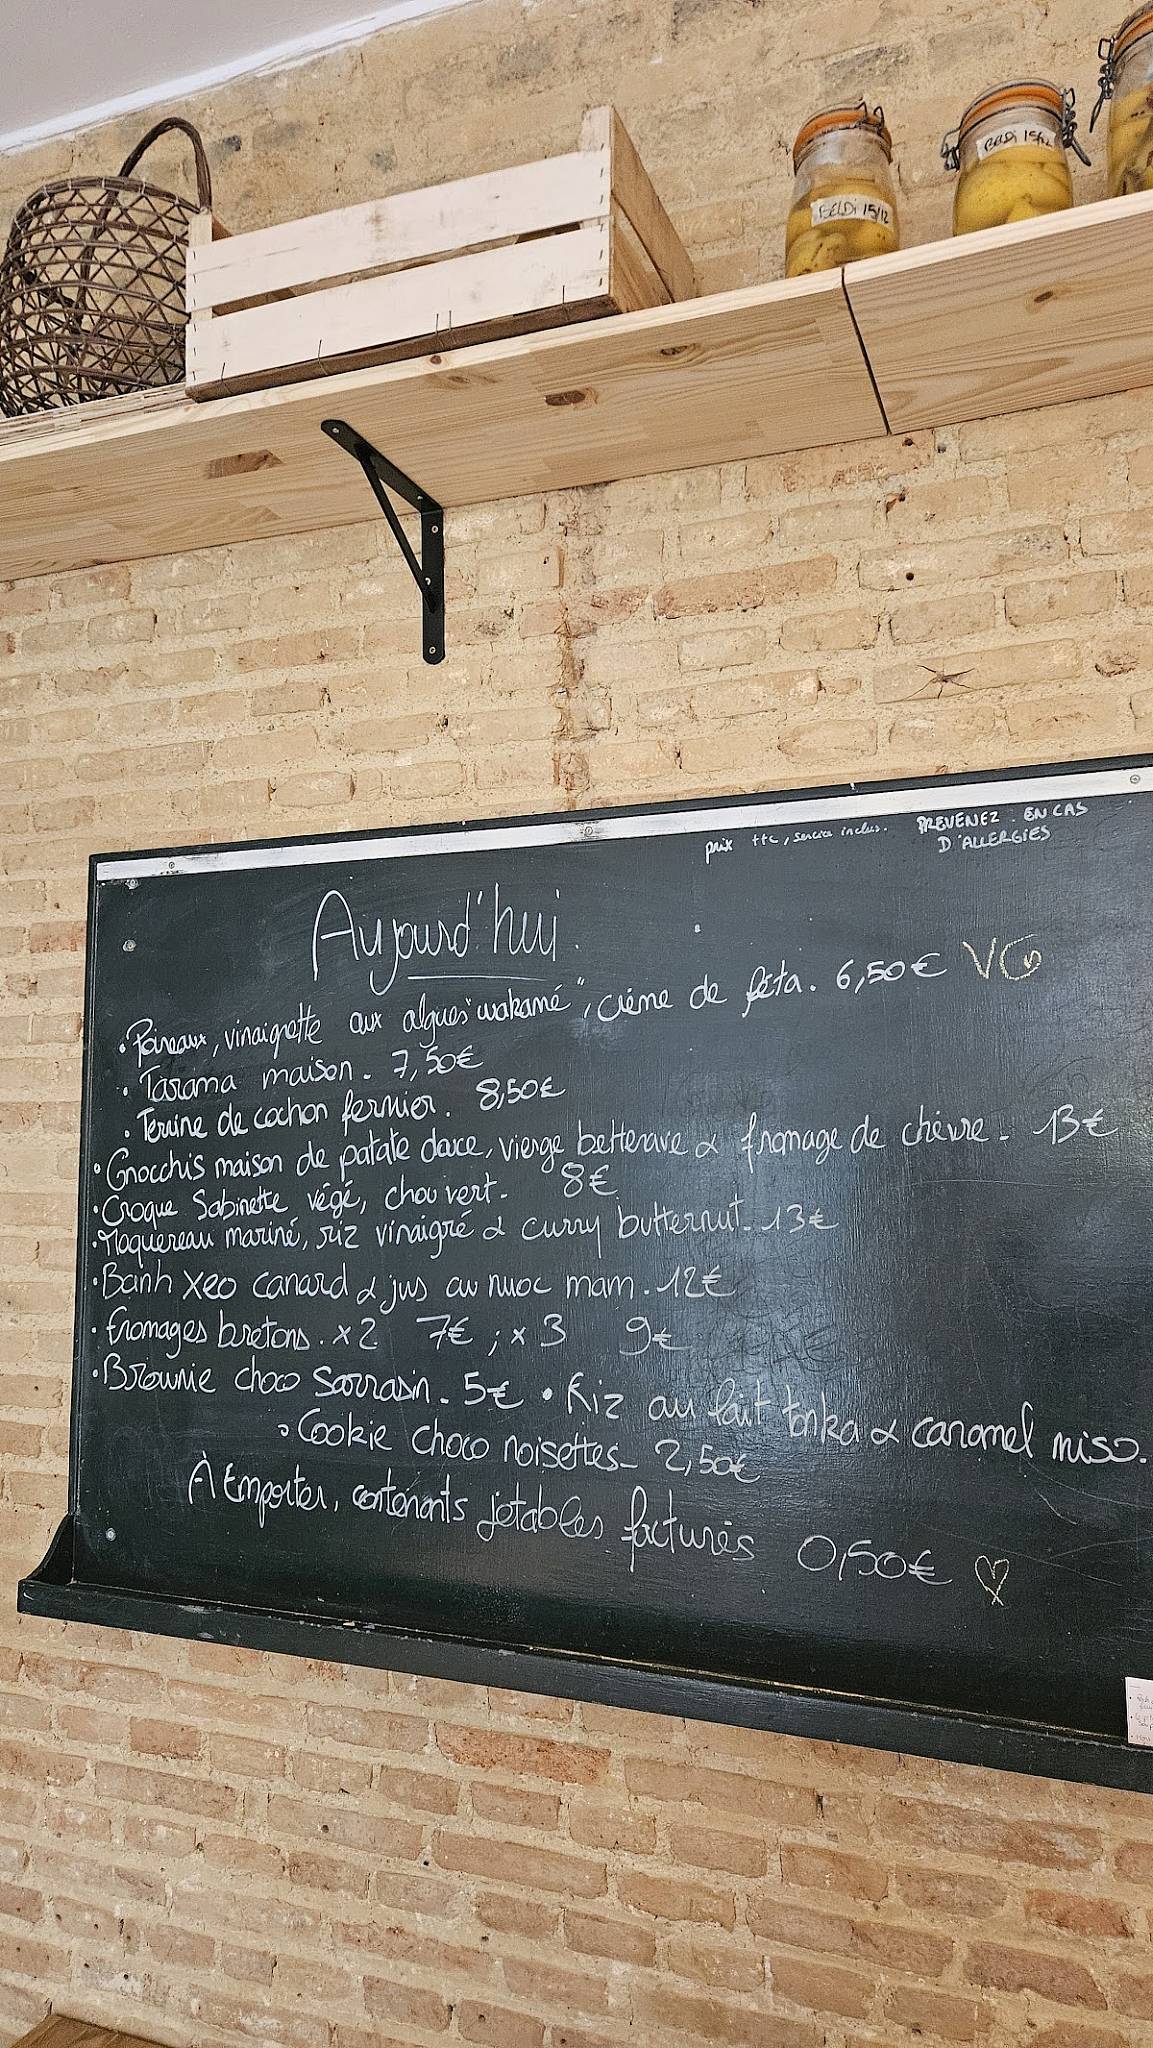 BELDI 15/12
BELDI 15/12
prix ttc, service inclus.
PREVENEZ. EN CAS
D'ALLERGIES
Aujourd'hui.
• Poireaux, vinaigrette aux algues "wakamé", crème de féta. 6,50€ VG
• Tarama maison. 7,50€
• Terrine de cochon fermier. 8,50€
• Gnocchis maison de patate douce, vierge betterave & fromage de chèvre. 13€
• Croque Sabinette végé, chou vert. 8€
• Maquereau mariné, riz vinaigré & curry butternut. 13€
• Banh xeo canard & jus au nuoc mam. 12€
• Fromages bretons. x2 7€ ; x3 9€
• Brownie choco Sarrasin. 5€ • Riz au lait tonka & caramel miso.
• Cookie choco noisettes_ 2,50€
À Emporter, contenants jetables facturés 0,50€ ♡